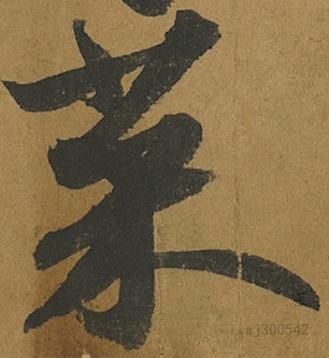 菜
aj300542